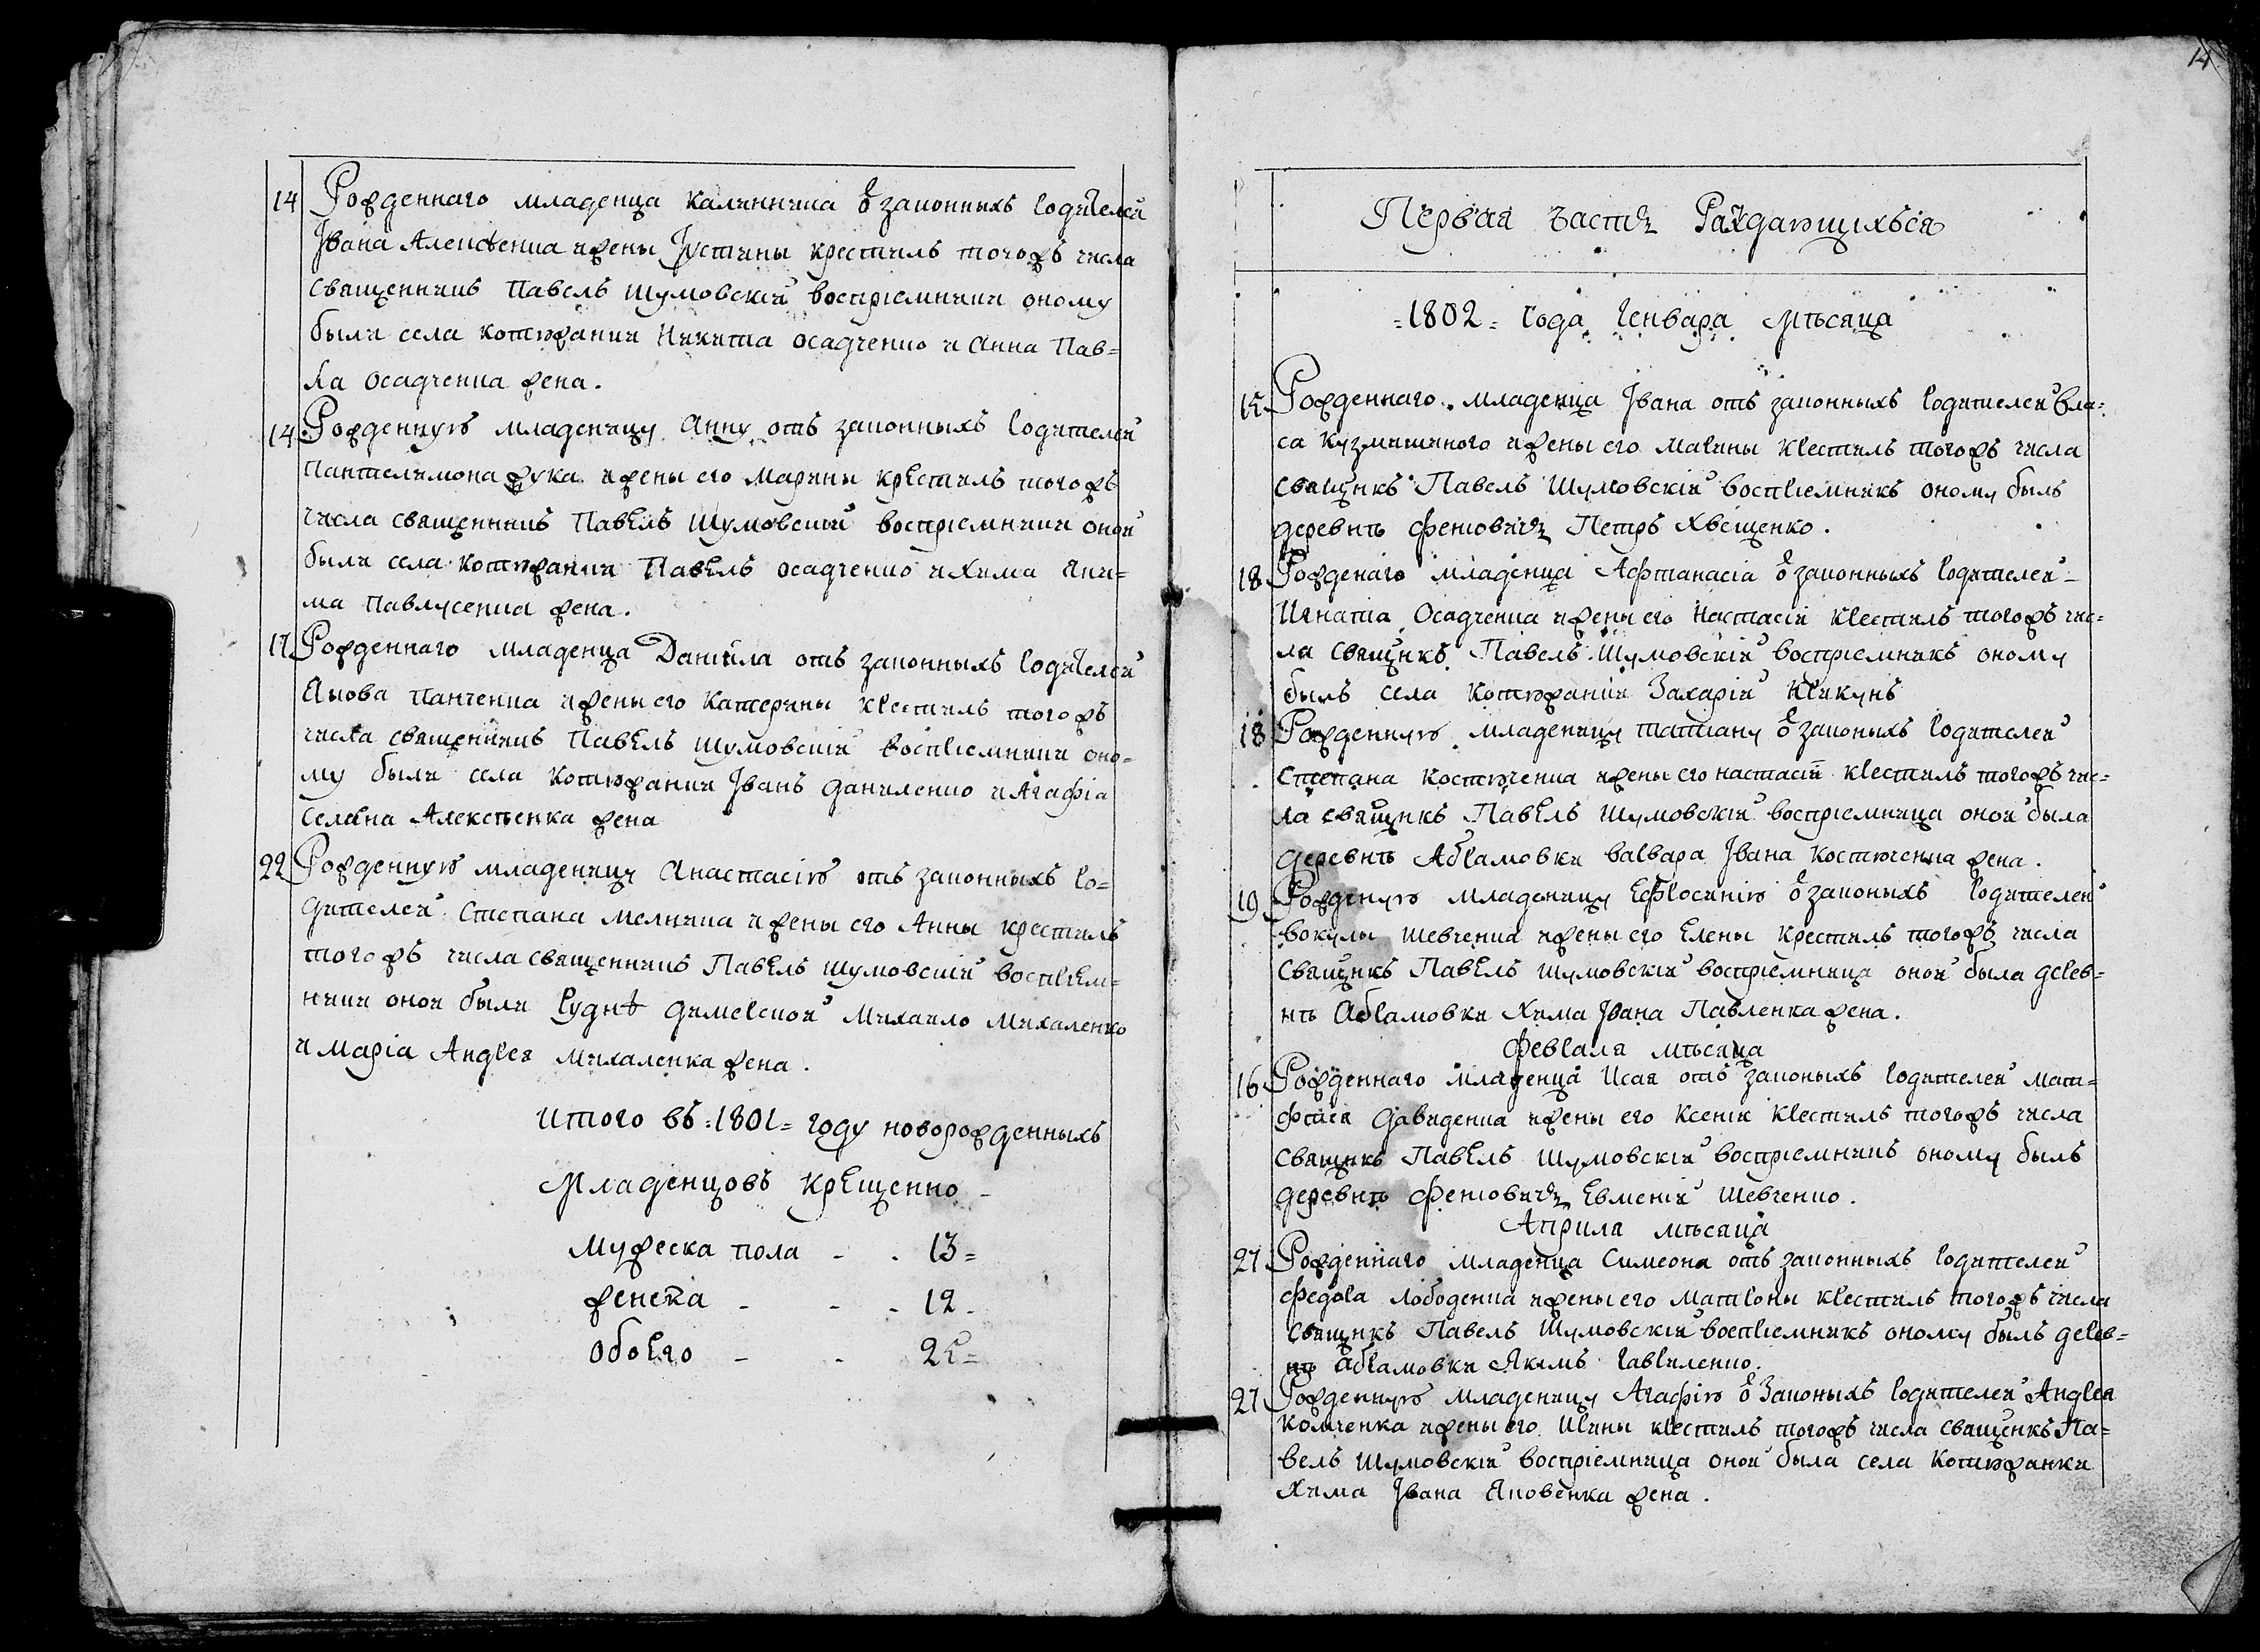 14
14 Рожденнаго младенца Калинника ѿ законныхъ родителей
Івана Алексѣенка и жены Іустины крестилъ тогожъ числа
священникъ Павелъ Шумовскій воспріемники оному
были села Котюжанки Никита Осадченко и Анна Пав=
ла Осадченка жена.
14 Рожденную младеницу Анну отъ законныхъ родителей
Пантелимона Жука и жены его Марины крестилъ тогожъ
числа священникъ Павелъ Шумовскій воспріемники оной
были села Котюжанки Павелъ Осадченко и Хима Яки=
ма Павлусенка жена.
17 Рожденнаго младенца Даніила отъ законныхъ родителей
Якова Панченка и жены его Катерины крестилъ тогожъ
числа священникъ Павелъ Шумовскій воспріемники оно=
му были села Котюжанки Іванъ Даниленко и Агафіа
Селана Алексѣенка жена
22 Рожденную младеницу Анастасію отъ законныхъ ро=
дителей Степана Мелника и жены его Анны крестилъ
тогожъ числа священникъ Павелъ Шумовскій воспріем=
ники оной были Рудни Димерской Михаило Михаленко
и Маріа Андрея Михаленка жена.
Итого въ =1801= году новорожденныхъ
Младенцовъ крещенно
Мужеска пола - - 13=
женска - - - 12-
обоего - - 25=
Первая часть Раждающихъся
=1802= года Генвара мѣсяца
15 Рожденнаго младенца Івана отъ законныхъ родителей Вла=
са Кузмишиного и жены его Марины крестилъ тогожъ числа
свящнкъ Павелъ Шумовскій воспріемникъ оному былъ
деревнѣ Феневичъ Петръ Хвещенко.
18 Рожденаго младенца Афтанасіа ѿ законныхъ родителей
Игната Осадченка и жены его Настасіи крестилъ тогожъ чис=
ла свящнкъ Павелъ Шумовскій воспріемникъ оному
былъ села Котюжанки Захарій Крикунъ
18 Рожденную младеницу Татіану ѿ законыхъ родителей
Степана Костюченка и жены его Настасіи крестилъ тогожъ чис=
ла свящнкъ Павелъ Шумовскій воспріемница оной была
деревнѣ Абрамовки Варвара Івана Костюченка жена.
19 Рожденую младеницу Ефросинію ѿ законыхъ родителей
Вокулы Шевченка и жены его Елены крестилъ тогожъ числа
свящнкъ Павелъ Шумовскій воспріемница оной была дерев=
нѣ Абрамовки Хима Івана Павленка жена.
Феврала мѣсяца
16 Рожденнаго младенца Исаа отъ законыхъ родителей Мат=
фтеа Давиденка и жены его Ксеніи крестилъ тогожъ числа
свящнкъ Павелъ Шумовскій воспріемникъ оному былъ
деревнѣ Феневичъ Евменій Шевченко.
Априла мѣсяца
27 Рожденнаго младенца Симеона отъ законныхъ родителей
Федора Лободенка и жены его Матроны крестилъ тогожъ числа
свящнкъ Павелъ Шумовскій воспріемникъ оному былъ дерев=
нѣ Абрамовки Якимъ Гавриленко.
27 Рожденную младеницу Агафію ѿ законыхъ родителей Андрея
Комченка и жены его Ирины крестилъ тогожъ числа свящнкъ Па=
велъ Шумовскій воспріемница оной была села Котюжанки
Хима Івана Яковенка жена.